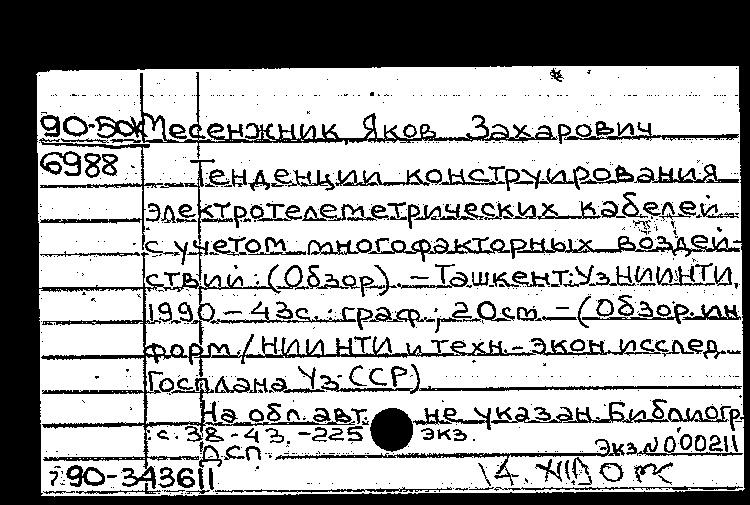 90-5ок Месенжник, Яков Захарович
6988 Тенденции конструирования
электротелеметрических кабелей
с учетом многофакторных воздей-
ствий: (Обзор). – Ташкент: УзНИИНТИ,
1990 – 43с.: граф.; 20см – (Обзор. ин
форм. / НИИ НТИ и техн.-экон. исслед
Госплана Уз.ССР).
На обл. авт. не указан. Библиогр
: с. 38-43. – 225 экз.
ДСП. Экз. N 000211
90-343611 14. XII 90